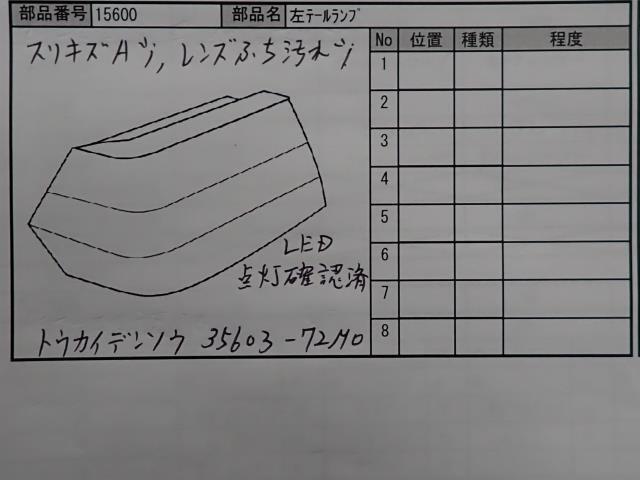 部品番号 15600 部品名 左ﾃｰﾙﾗﾝﾌﾟ
スリキズAツ, レンズふち汚れツ
No 位置 種類 程度
1
2
3
4
5
6
7
8
LED
点灯確認済
トウカイデンソウ 35603-72M0